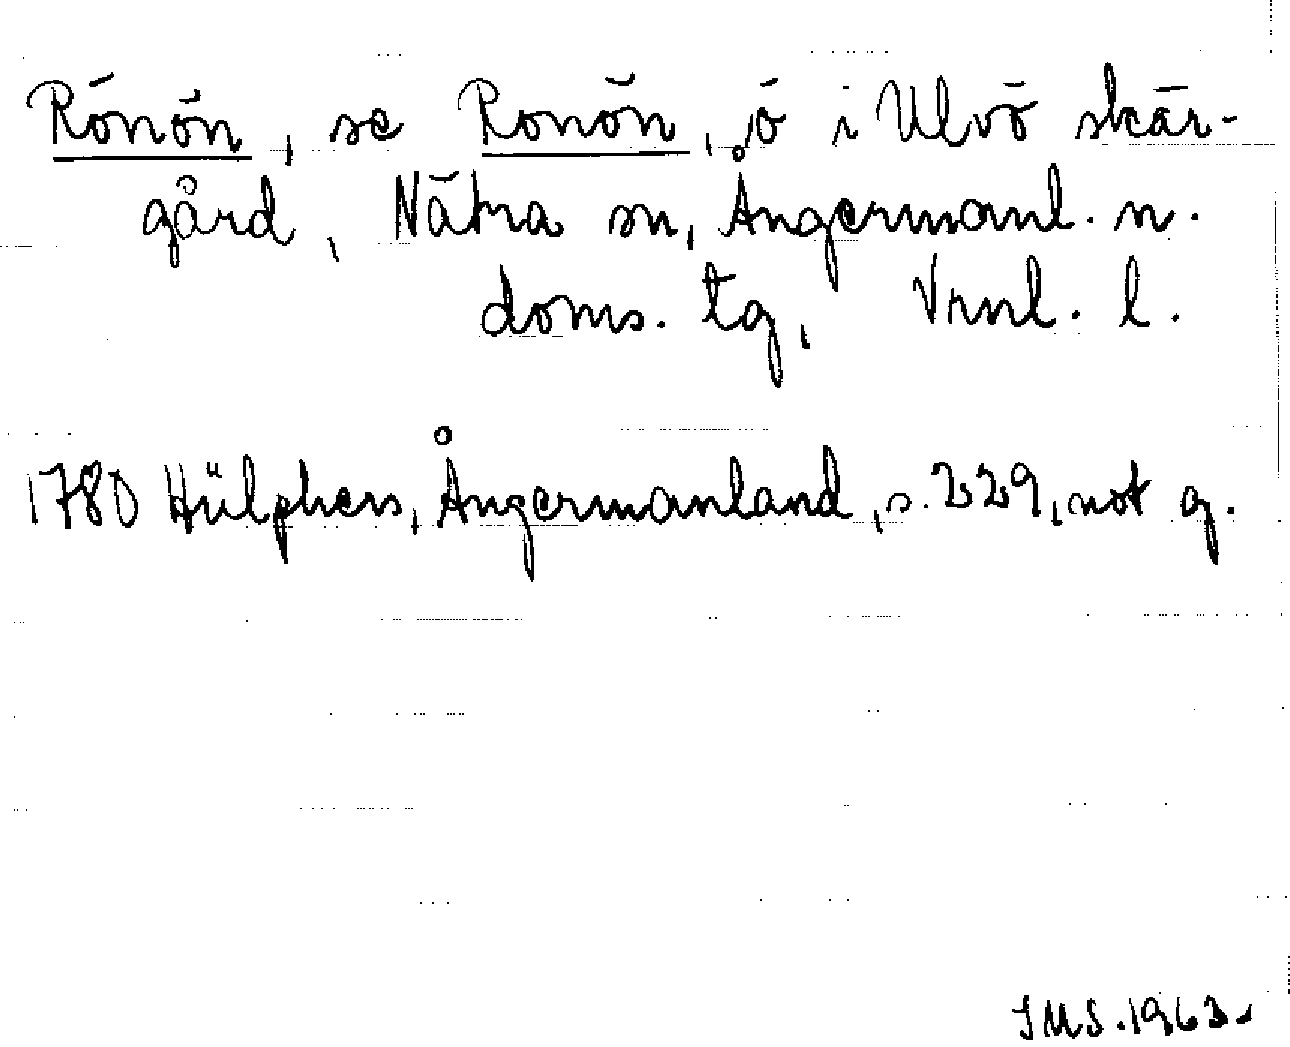 Rönön, se Ronön, ö i Ulvö skär-
gård, Nätra sn, Ångermanl. n.
doms. tg, Vrnl. l.
1780 Hülphers, Ångermanland, s. 229, not q.
JMS. 1963.